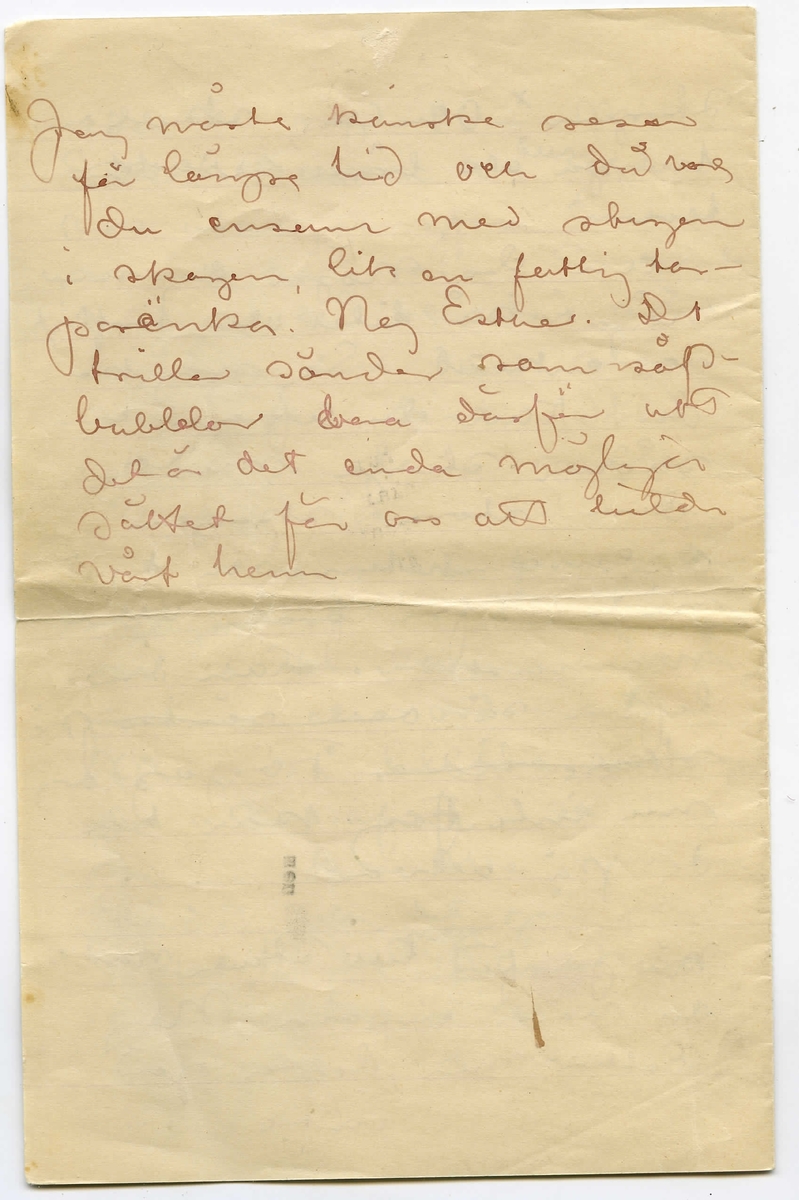 Jag måste kanske resa
för längre tid och då var
du ensam med stugan
i skogen, lik en fattig tor-
paränka. Nej Esther. Det
trillar sönder som såp-
bubblor bara därför att
det är det enda möjliga
sättet för oss att bilda
vårt hem